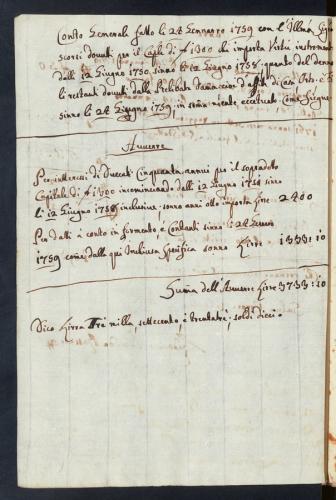 Conto Generale fatto li 24 Gennaro 1759 con l'Illmo Sig.
scorsi dovuti per il Caple di # 1300 che importa Virtù instromento
dalli 12 Giugno 1750 sino li 12 Giugno 1758 quanto del denaro
li restanti dovuti dalla Prelibata affitti di
sino li 24 Giugno 1759, in sominiente eccettuato Come segue
Avvere
Per interessi di Ducati Cinquanta annui per il sopradetto
Capitale di # 1300 incominciando dalli 12 Giugno 1750 sino
li 12 Giugno 1758 inclusive, sonno anni otto importa Lire 2400
Per datti à conto in formento e Contanti sino 24 Genaro
1759 come dalla qui Inclusa specifica sonno Lirre 1333:10
Suma dell'Avvere Lirre 3733:10
Dico Lirre Tre milla, settecento, è trentatrè: soldi dieci.